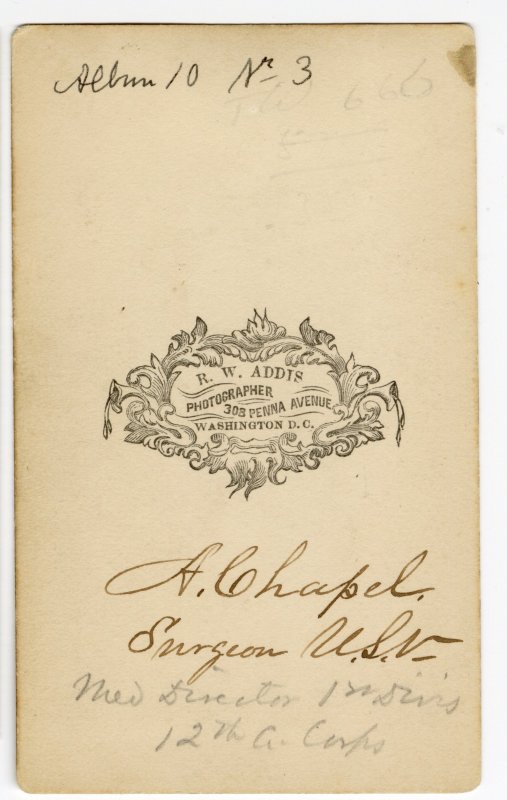 Album 10 Nr 3
R. W. ADDIS
PHOTOGRAPHER
308 PENNA AVENUE
WASHINGTON D.C.
A. Chapel.
Surgeon U.S.V.
Med Director 1st Divis
12th A. Corps